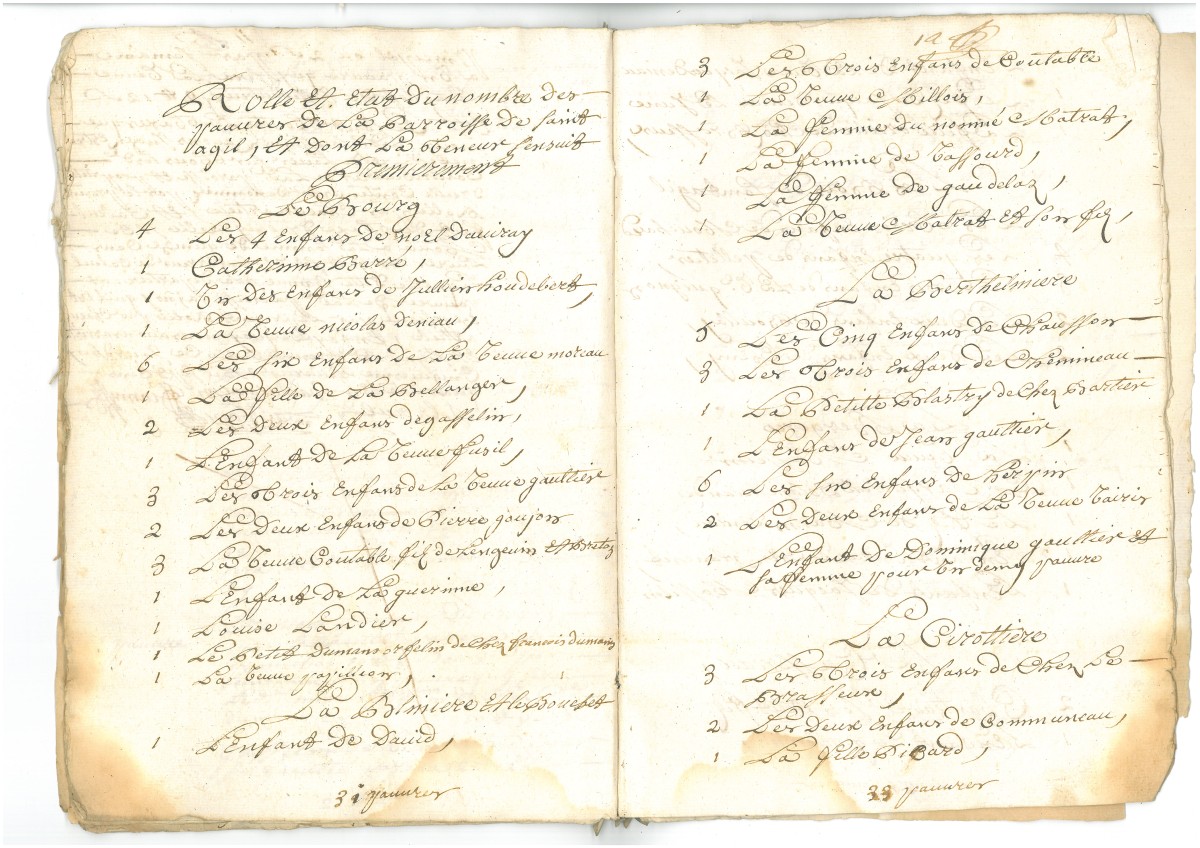 Rolle Et. Etat du nombre des
pauvres de La Parroisse de Saint
agil, Et dont La Teneur Sensuit
Premierement
Le Bourg
4 Les 4 Enfans de noël Dauvray
1 Catherinne Barre,
1 Un des Enfans de Jullien houdebert,
1 La Veuve nicolas Deniau,
6 Les six Enfans de La Veuve moreau
1 La fille de La Bellanger,
2 Les Deux Enfans de gasselin,
1 L'Enfant de La Veuve fusil,
3 Les Trois Enfans de La Veuve gaultier
2 Les Deux Enfans de Pierre goujon
3 La Veuve Contable fils de Et Breton
1 L'Enfant de La guerinne,
1 Louise Landier,
1 Le Petit Dumans orfelin de Chez françois dumans
1 La Veuve papillion,
La Et le
1 L'Enfant de David,
31 pauvres
3 Les Trois Enfans de Contable
1 La Veuve Millois,
1 La femme du nommé Matrat,
1 La femme de Tassourd,
1 La femme de gaudelas,
1 La Veuve Matrat Et son fils,
La Bertheimiere
5 Les Cinq Enfans de Chausson
3 Les Trois Enfans de Chemineau
1 La Petitte Blastry de Chez Bartier
1 L'Enfans de Jean gaultier,
6 Les six Enfans de herpin
2 Les Deux Enfans de La Veuve Vairis
1 L'Enfant de Dominique gaultier Et
sa femme pour Un demy pauvre
La Cirottiere
3 Les Trois Enfans de Chez Le
Brasseur,
2 Les Deux Enfans de Communeau,
1 La fille Picard,
33 pauvres